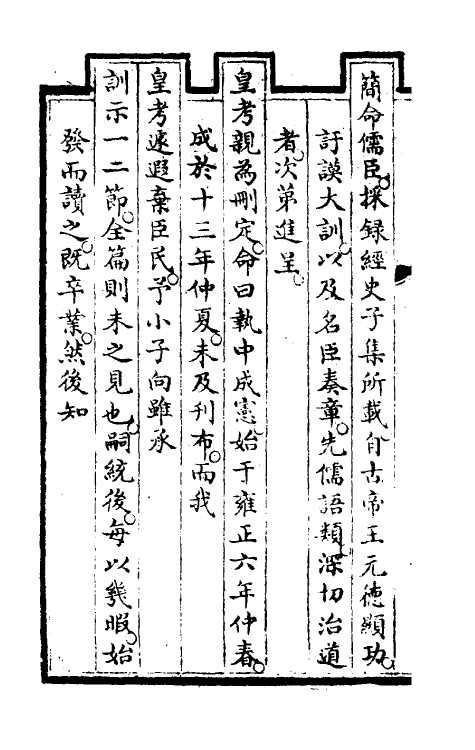 簡命儒臣。採録經史子集所載自古帝王元德顯功。
訏謨大訓。以及名臣奏章。先儒語類。深切治道
者。次第進呈。
皇考親為刪定。命曰執中成憲。始于雍正六年仲春。
成於十三年仲夏。未及刋布。而我
皇考遽遐棄臣民。予小子向雖承
訓示一二節。全篇則未之見也。嗣統後。每以㡬暇。始
發而讀之。既卒業。然後知